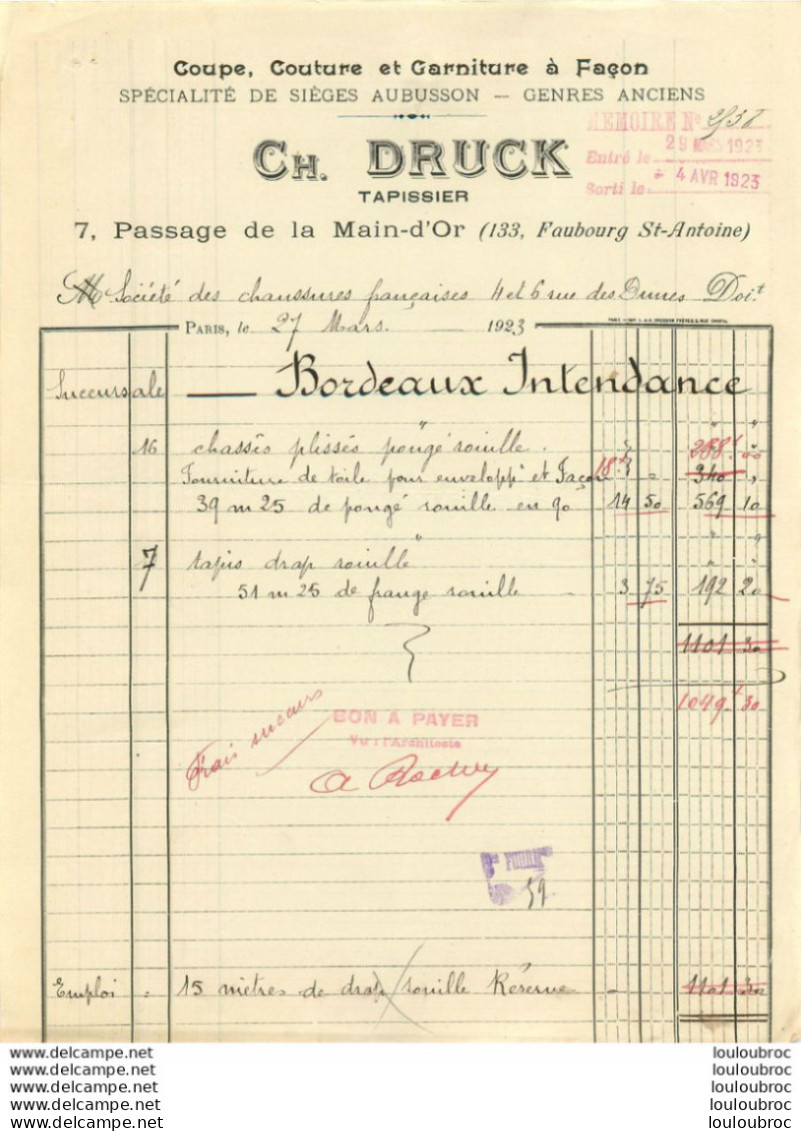 Coupe, Couture et Garniture à Façon
SPÉCIALITÉ DE SIÈGES AUBUSSON — GENRES ANCIENS
MEMOIRE N°
CH. DRUCK
Entré le 29 MARS 1923
TAPISSIER
Sorti le 4 AVR 1923
7, Passage de la Main-d'Or (133, Faubourg St-Antoine)
M Société des chaussures françaises 4 et 6 rue des Dunes Doit
PARIS, le 27 Mars 1923
Succursale — Bordeaux Intendance
16 chassis plissés pongé rouille 288f 00
Fourniture de toile pour envelopp" et Façon 18f 340 "
39 m 25 de pongé rouille en 90 14 50 569 10
7 tapis drap rouille " "
51 m 25 de frange rouille 3 75 192 20
1101 30
1049f 30
Frais succurs
BON A PAYER
Vu : l'Architecte
59
Emploi 15 mètres de drap rouille Réserve 1101 30
www.delcampe.net louloubroc
www.delcampe.net louloubroc
www.delcampe.net louloubroc
www.delcampe.net louloubroc
www.delcampe.net louloubroc